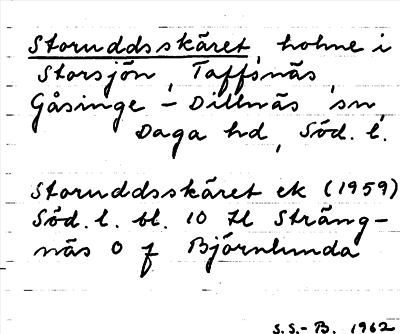 Storuddsskäret, holme i
Storsjön, Taffsnäs,
Gåsinge-Dillnäs sn,
Daga hd, Söd. l.
Storuddsskäret ek (1959)
Söd. l. bl. 10 H Sträng-
näs O f Björnlunda
S.S.-B. 1962